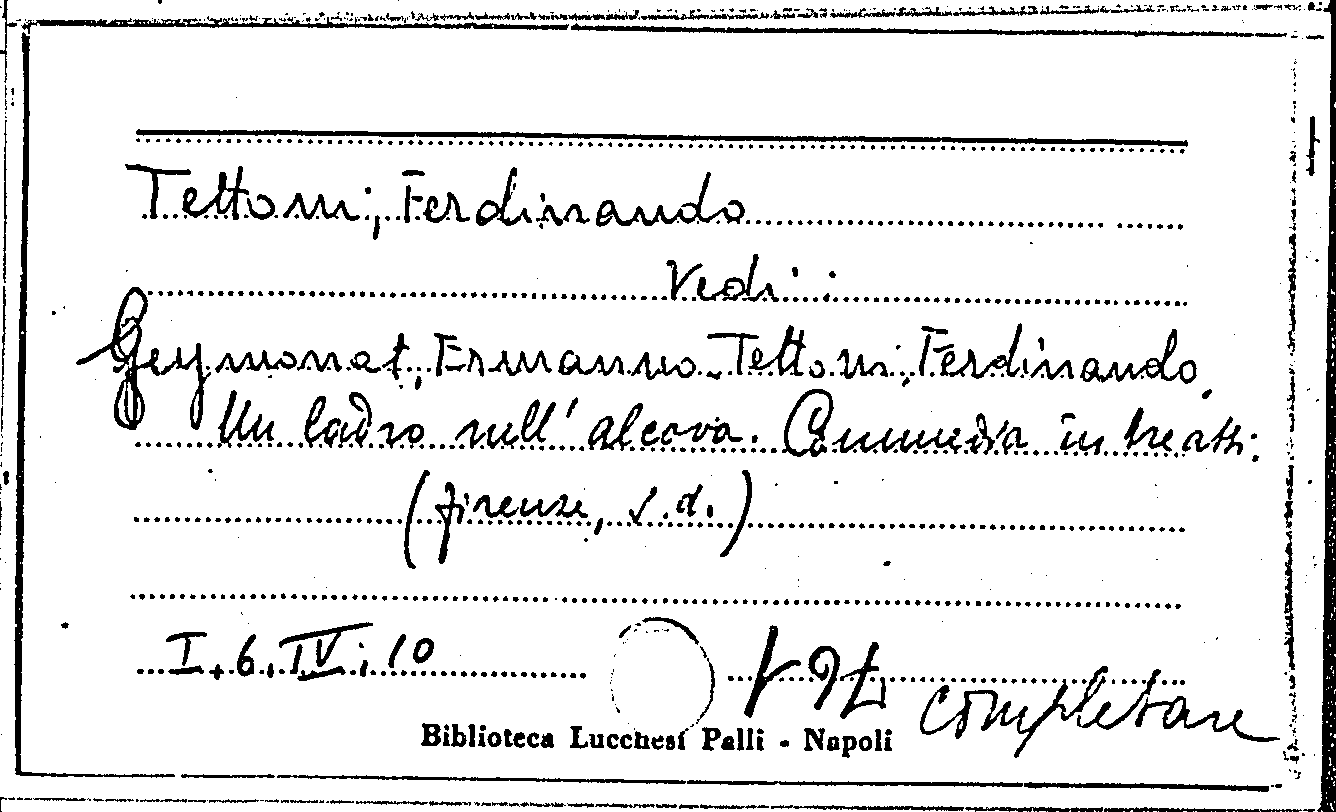 Tettoni, Ferdinando
Vedi:
Geymonat, Ermanno-Tettoni, Ferdinando.
Un ladro nell'alcova. Commedia in tre atti.
(Firenze, s.d.)
I.6.IV.10
completare
Biblioteca Lucchesi Palli - Napoli